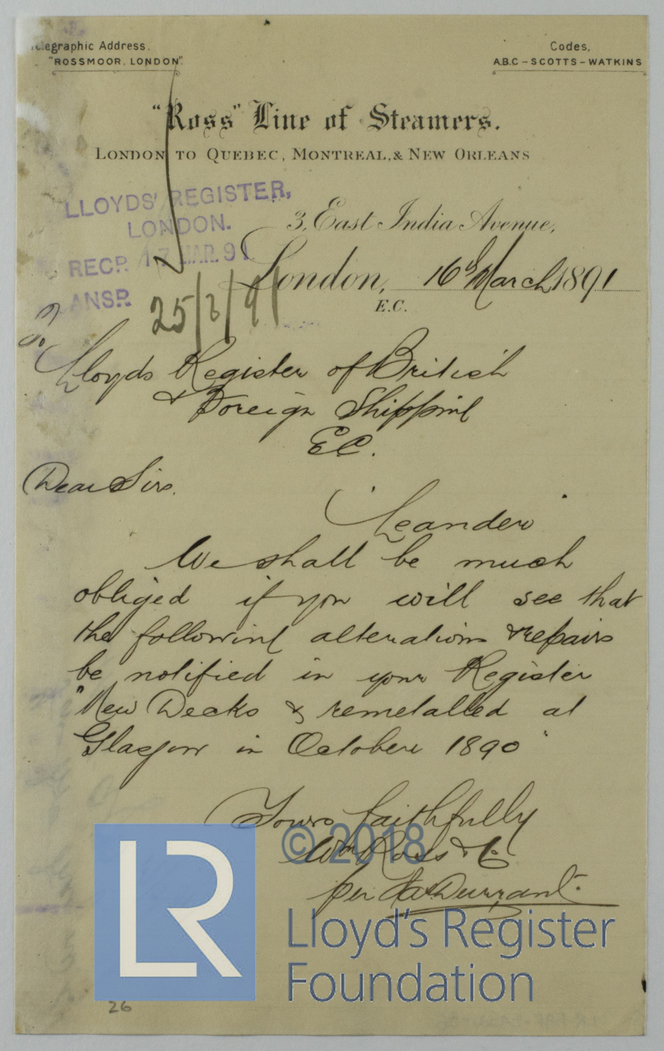 Telegraphic Address.
"ROSSMOOR, LONDON"
Codes,
A.B.C – SCOTTS – WATKINS
"Ross" Line of Steamers.
LONDON TO QUEBEC, MONTREAL, & NEW ORLEANS
LLOYDS' REGISTER,
LONDON.
RECD. 17 MAR. 91
ANSD.
25/3/91
3, East India Avenue,
London, 16th March 1891
E.C.
To
Lloyds Register of British
& Foreign Shipping
E.C.
Dear Sirs.
"Leander"
We shall be much
obliged if you will see that
the following alterations & repairs
be notified in your Register
"New Decks & remetalled at
Glasgow in October 1890"
Yours faithfully
Wm Ross & Co
per Durrant
© 2018
LR
Lloyd's Register
Foundation
26